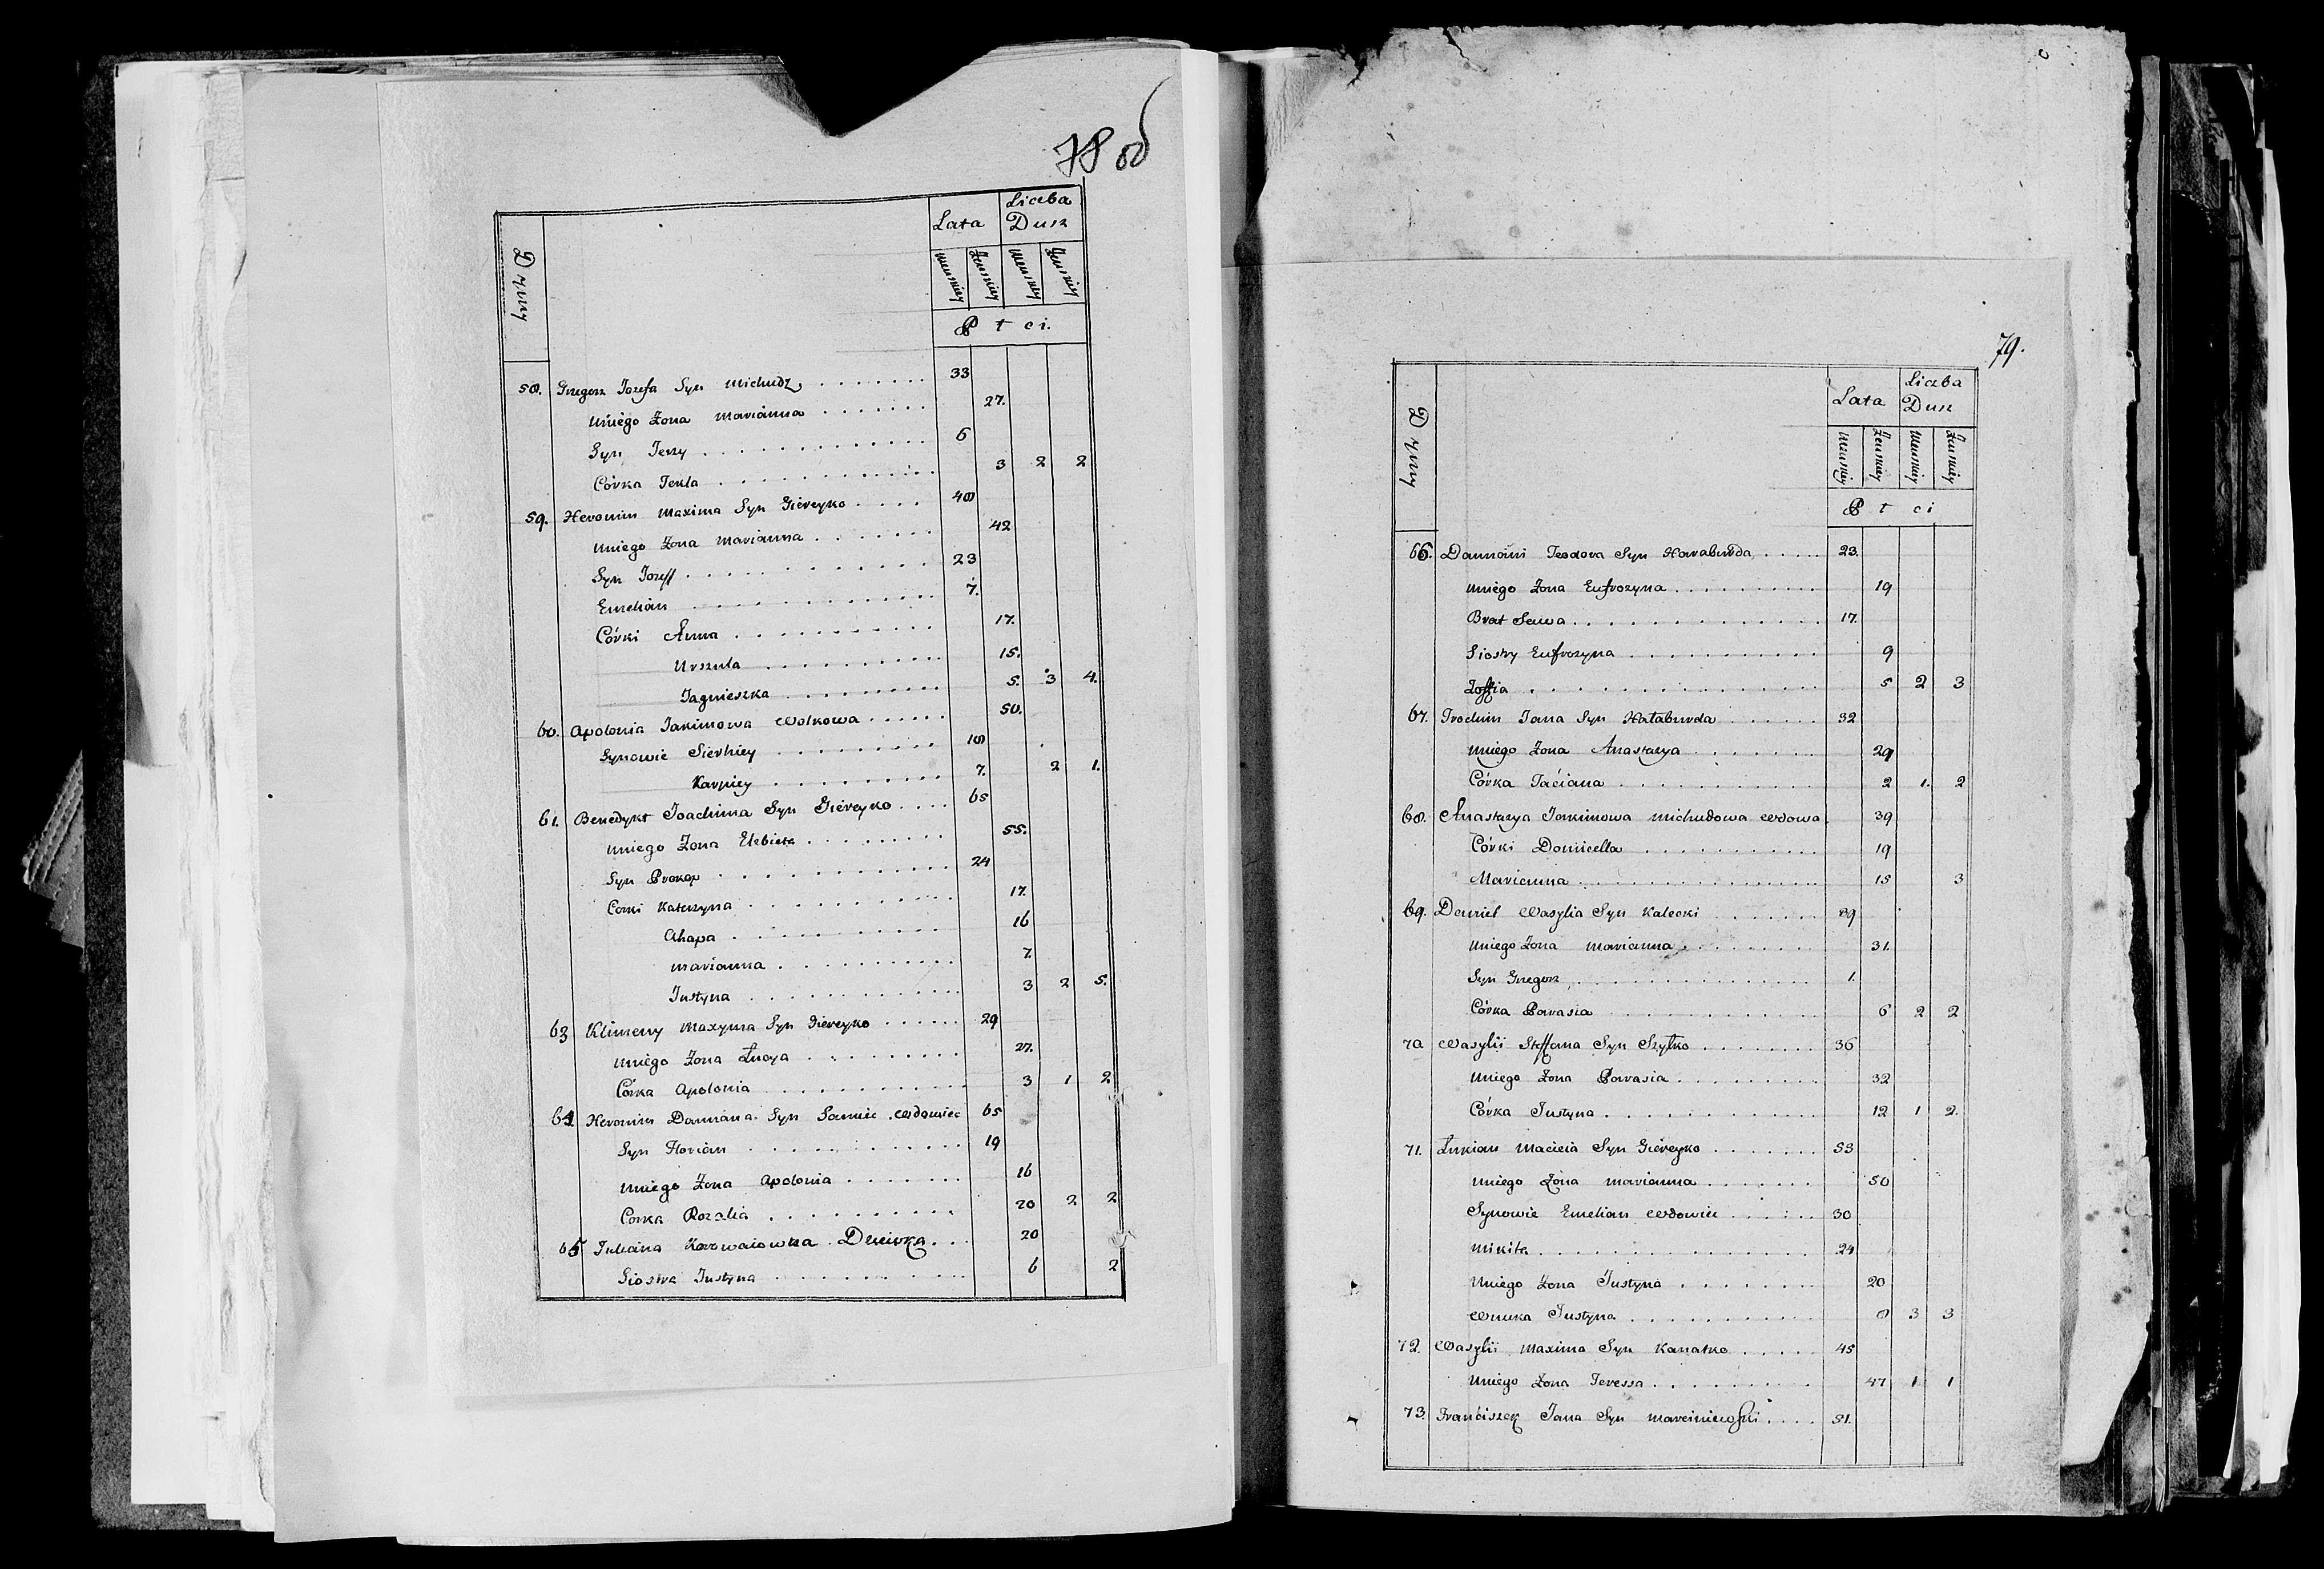 78 об
Dymy
Lata
Liczba Dusz
Męskiey Żenskiey Męskiey Żenskiey
Płci.
58. Grzegorz Jozefa Syn Michudz 33
Uniego Żona Marianna 27.
Syn Jerzy 6
Córka Tekla 3 2 2
59. Heronim Maxima Syn Giereyko 48
Uniego Żona Marianna 42
Syn Jozeff 23
Emelian 7.
Córki Anna 17.
Urszula 15.
Jagnieszka 5. 3 4.
60. Apolonia Jakimowa Wolkowa 50.
Synowie Sierhiey 18
Karpiey 7. 2 1.
61. Benedykt Joachima Syn Giereyko 65
Uniego Żona Elzbieta 55.
Syn Prokop 24
Corki Katerzyna 17.
Ahapa 16
Marianna 7.
Justyna 3 2 5.
63 Klimeny Maxyma Syn Giereyko 29
Uniego Żona Łucya 27.
Córka Apolonia 3 1 2
64 Heronim Damiana Syn Samiec Wdowiec 65
Syn Florian 19
Uniego Żona Apolonia 16
Corka Rozalia 20 2 2
65 Juliana Karowaiowna Dziewka 20
Siostra Justyna 6 2
79.
Dymy
Lata
Liczba Dusz
Męskiey Żenskiey Męskiey Żenskiey
Płci
66. Damian Teodora Syn Haraburda 23.
Uniego Żona Eufrozyna 19
Brat Sawa 17.
Siostry Eufrozyna 9
Zoffia 5 2 3
67. Trochim Jana Syn Hataburda 32
Uniego Żona Anastazya 29
Córka Taciana 2 1. 2
68. Anastazya Jankimowa Michudowa Wdowa 39
Córki Domicella 19
Marianna 15 3
69. Daniel Wasylia Syn Kalecki 39
Uniego Żona Marianna 31.
Syn Grzegorz 1.
Córka Parasia 6 2 2
70 Wasylii Steffana Syn Szyłko 36
Uniego Żona Parasia 32
Córka Justyna 12 1 2.
71. Łukian Macieia Syn Giereyko 53
Uniego Żona Marianna 50
Synowie Emelian Wdowiec 30
Mikita 24
Uniego Żona Justyna 20
Wnuka Justyna 8 3 3
72. Wasylii Maxima Syn Kanatko 45
Uniego Żona Teressa 47 1 1
73. Franciszek Jana Syn Marciniewski 51.